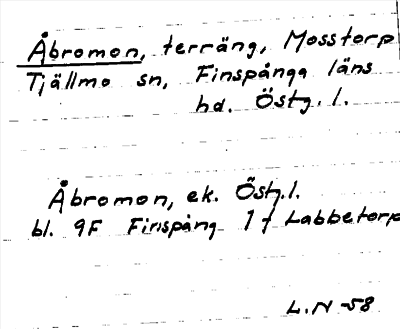 Åbromon, terräng, Mosstorp
Tjällmo sn, Finspånga läns
hd. Östg. l.
Åbromon, ek. Östg. l.
bl. 9F Finspång 1f Labbetorp
L.N -58